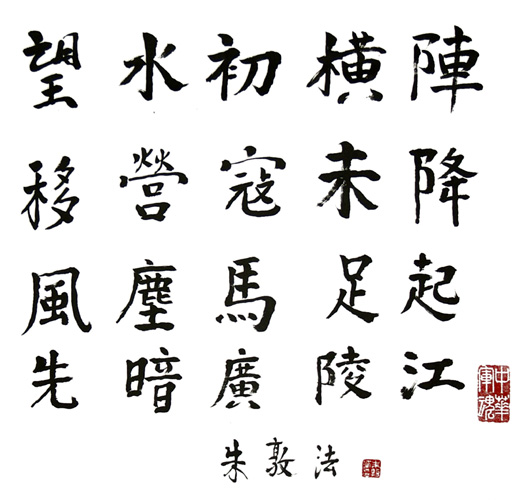 望水初橫陣
移營寇未降
風塵馬足起
先暗廣陵江
中華軍魂
朱敦法